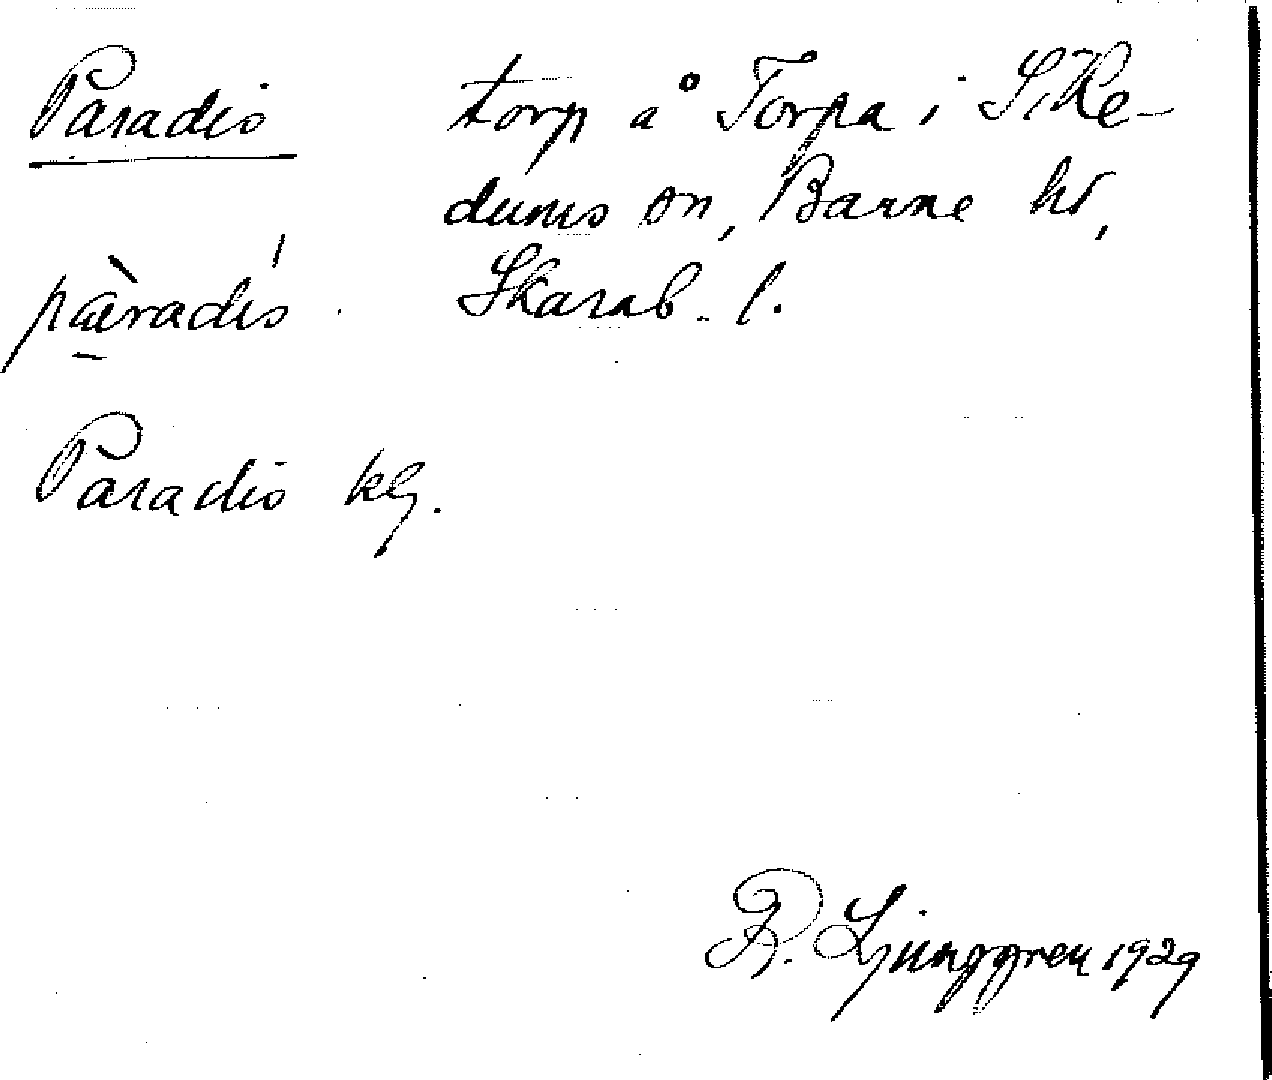 Paradis torp å Torpa i S. Ke-
dums sn, Barne hd,
pàradis Skarab. l.
Paradis kg.
R. Ljunggren 1929